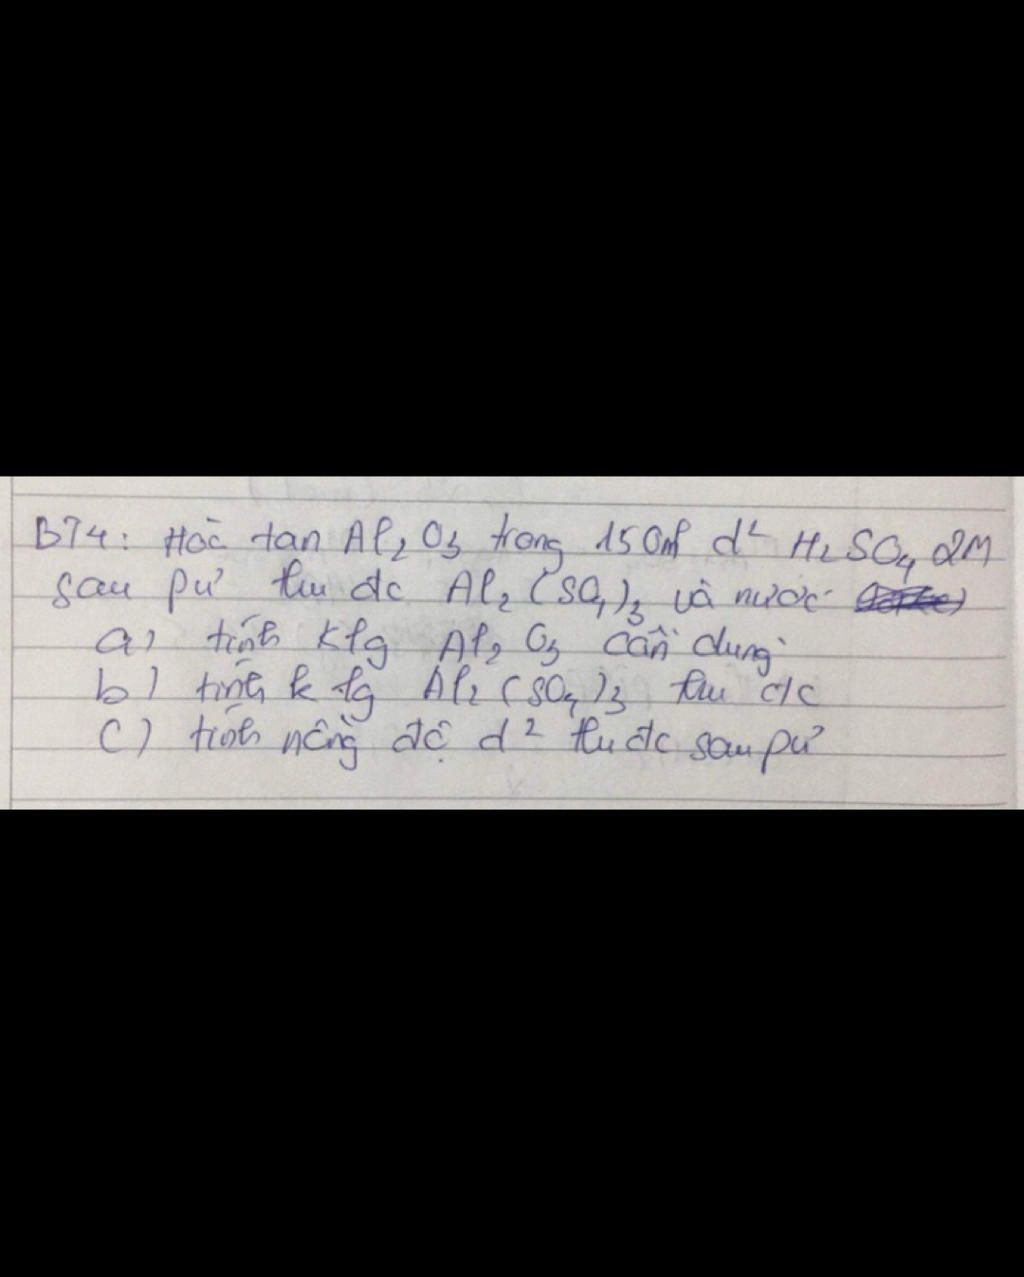 BT4: Hòa tan Al₂O₃ trong 150ml d² H₂SO₄ 2M
sau pứ thu đc Al₂(SO₄)₃ và nước
a) tính klg Al₂O₃ cần dùng
b) tính klg Al₂(SO₄)₃ thu đc
c) tính nồng độ d² thu đc sau pứ